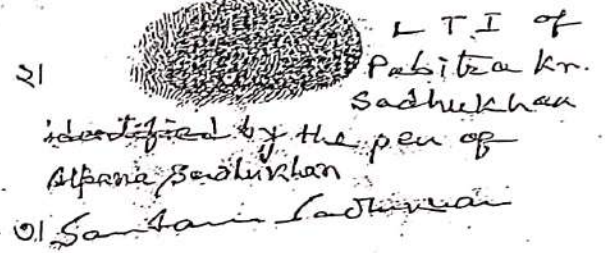 ২। L T I of
Pabitra Kr.
Sadhukhan
identified by the pen of
Alpana Sadhukhan
৩। Santanu Sadhukhan